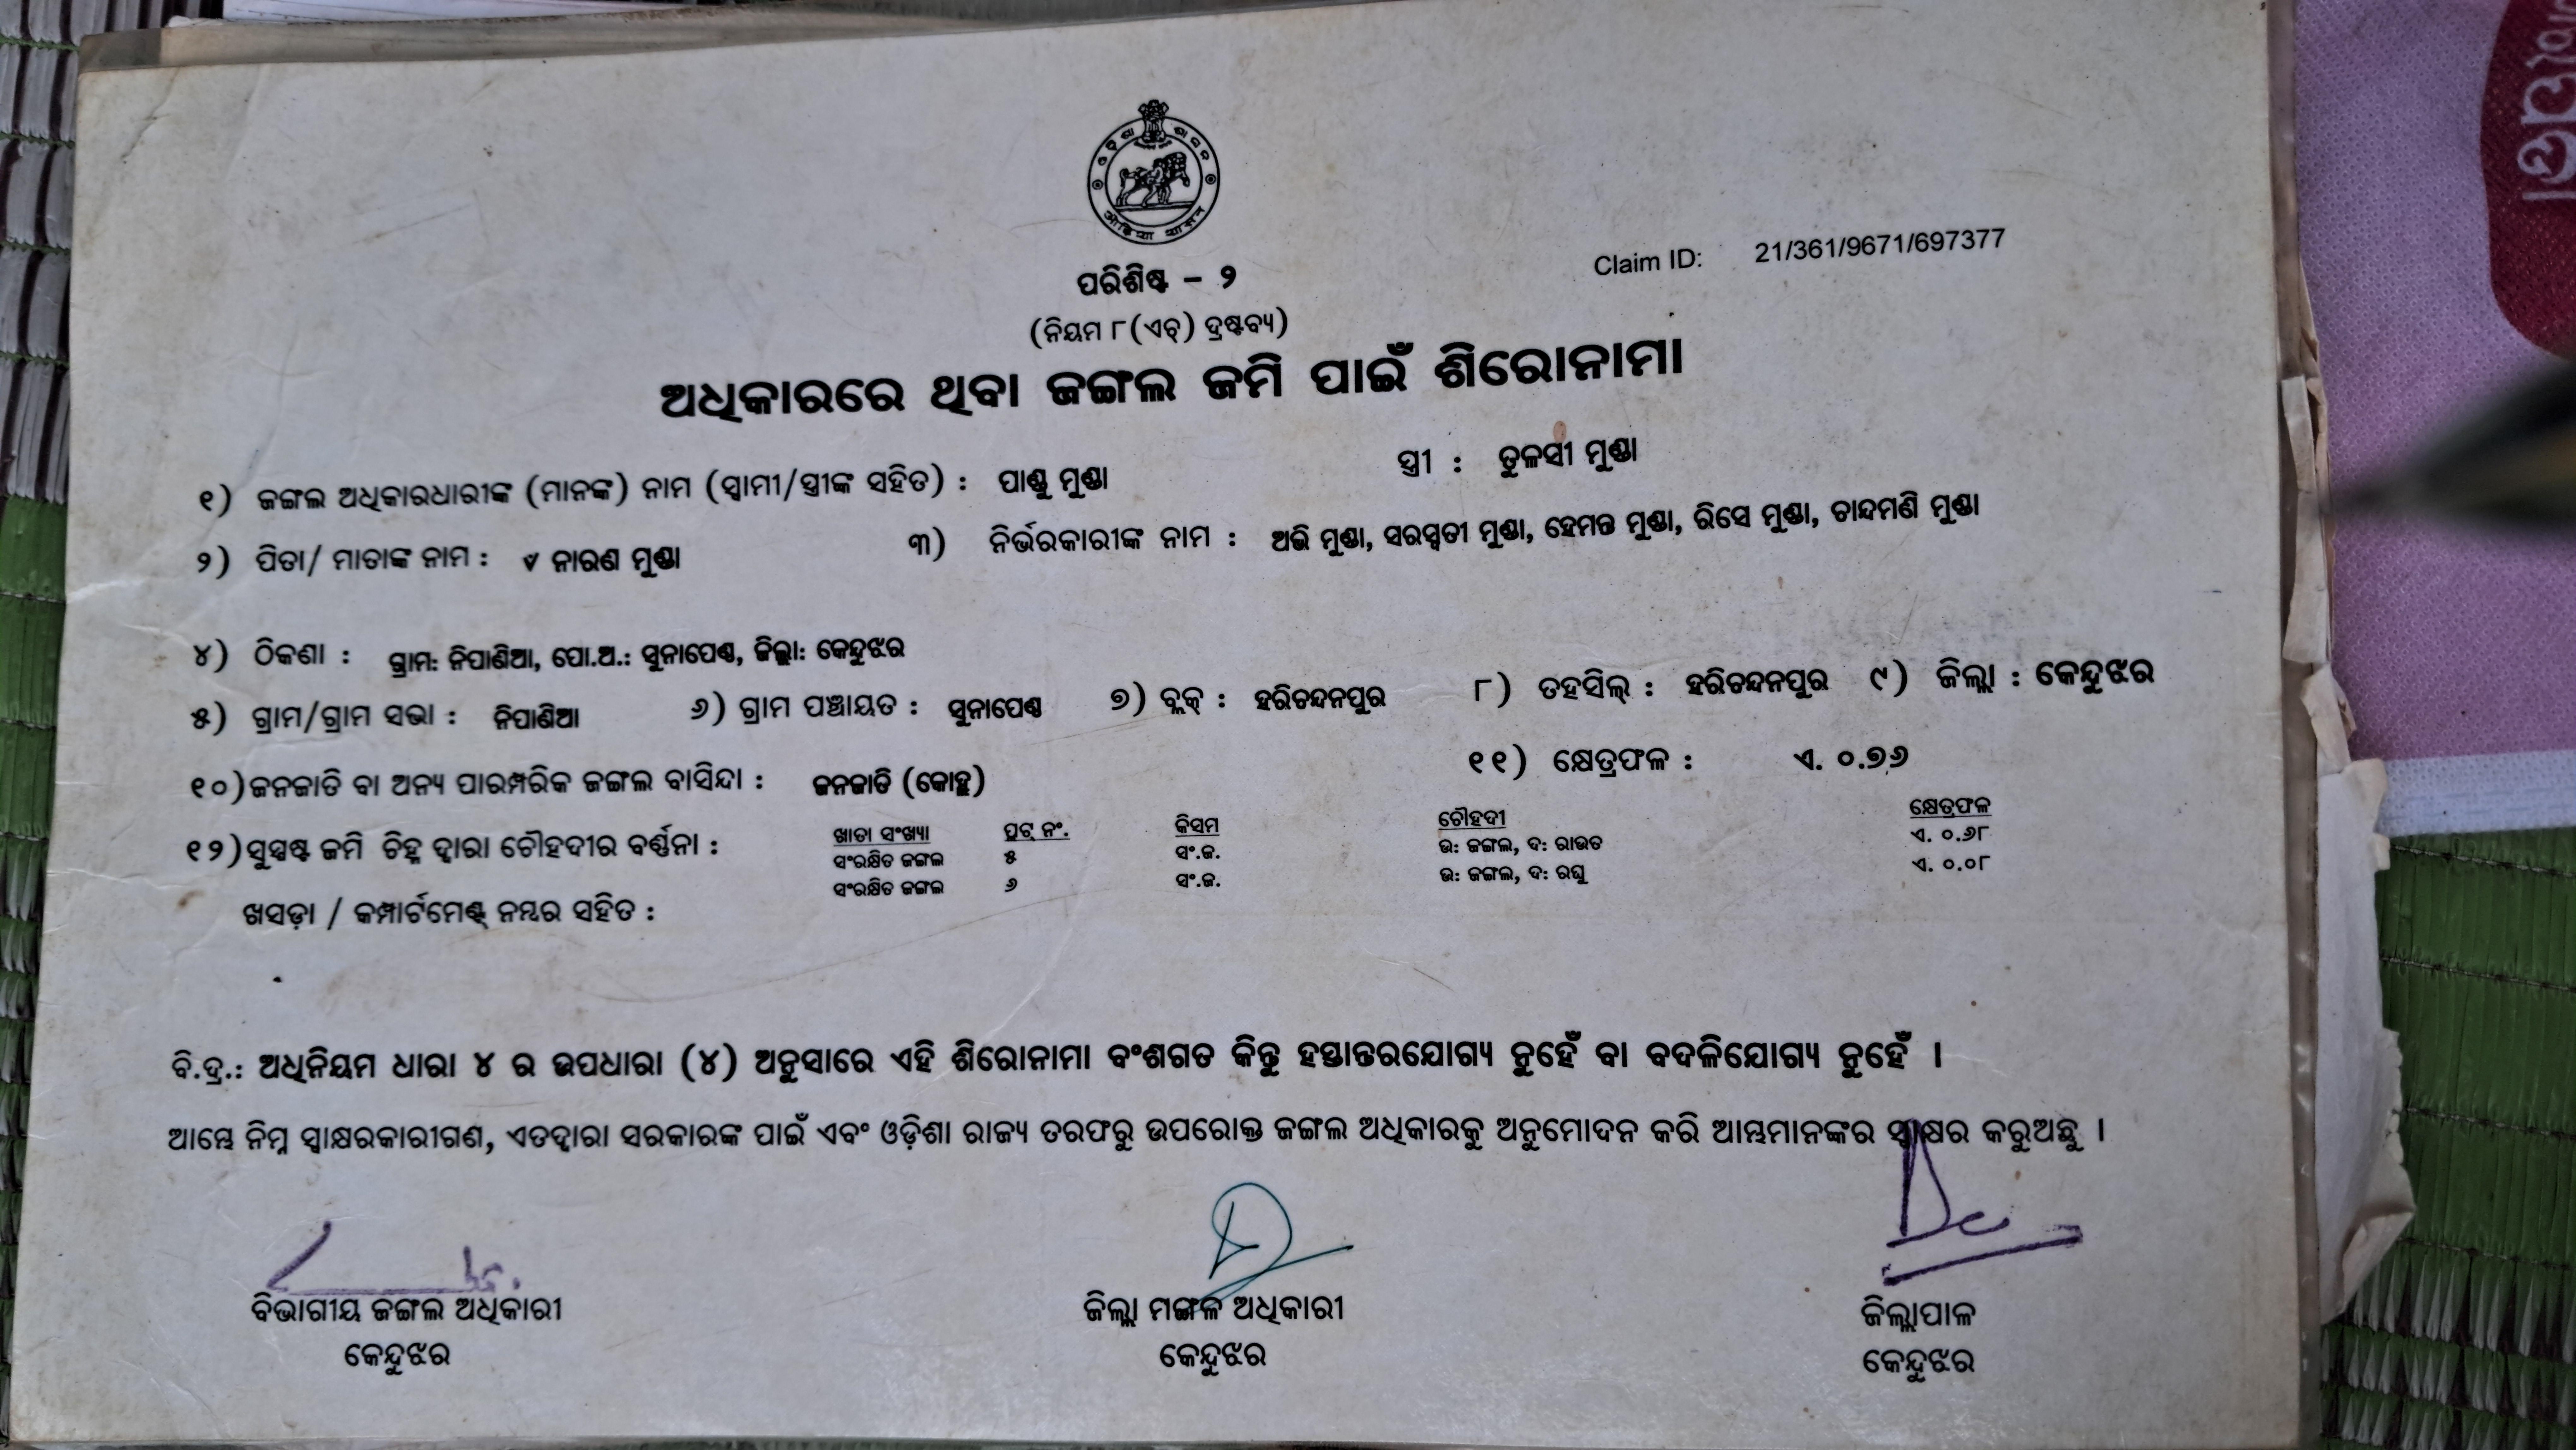 ଓଡ଼ିଶା ଶାସନ
Claim ID: 21/361/9671/697377
ପରିଶିଷ୍ଟ – ୨
(ନିୟମ ୮(ଏଚ୍) ଦ୍ରଷ୍ଟବ୍ୟ)
ଅଧିକାରରେ ଥିବା ଜଙ୍ଗଲ ଜମି ପାଇଁ ଶିରୋନାମା
୧) ଜଙ୍ଗଲ ଅଧିକାରଧାରୀଙ୍କ (ମାନଙ୍କ) ନାମ (ସ୍ୱାମୀ/ସ୍ତ୍ରୀଙ୍କ ସହିତ) : ପାଣ୍ଡୁ ମୁଣ୍ଡା ସ୍ତ୍ରୀ : ତୁଳସୀ ମୁଣ୍ଡା
୨) ପିତା/ ମାତାଙ୍କ ନାମ : ନାରଣ ମୁଣ୍ଡା ୩) ନିର୍ଭରକାରୀଙ୍କ ନାମ : ଅଭି ମୁଣ୍ଡା, ସରସ୍ୱତୀ ମୁଣ୍ଡା, ହେମନ୍ତ ମୁଣ୍ଡା, ରିସେ ମୁଣ୍ଡା, ଚାନ୍ଦମଣି ମୁଣ୍ଡା
୪) ଠିକଣା : ଗ୍ରାମ: ନିପାଣିଆ, ପୋ.ଅ.: ସୁନାପେଣ୍ଠ, ଜିଲ୍ଲା: କେନ୍ଦୁଝର
୫) ଗ୍ରାମ/ଗ୍ରାମ ସଭା : ନିପାଣିଆ ୬) ଗ୍ରାମ ପଞ୍ଚାୟତ : ସୁନାପେଣ୍ଠ ୭) ବ୍ଲକ୍ : ହରିଚନ୍ଦନପୁର ୮) ତହସିଲ୍ : ହରିଚନ୍ଦନପୁର ୯) ଜିଲ୍ଲା : କେନ୍ଦୁଝର
୧୦) ଜନଜାତି ବା ଅନ୍ୟ ପାରମ୍ପରିକ ଜଙ୍ଗଲ ବାସିନ୍ଦା : ଜନଜାତି (କୋହ୍ଲ) ୧୧) କ୍ଷେତ୍ରଫଳ : ଏ. ୦.୭୬
୧୨) ସୁସ୍ପଷ୍ଟ ଜମି ଚିହ୍ନ ଦ୍ୱାରା ଚୌହଦୀର ବର୍ଣ୍ଣନା :
ଖାତା ସଂଖ୍ୟା ପ୍ଲଟ୍ ନଂ. କିସମ ଚୌହଦୀ କ୍ଷେତ୍ରଫଳ
ସଂରକ୍ଷିତ ଜଙ୍ଗଲ ୫ ସଂ.ଜ. ଉ: ଜଙ୍ଗଲ, ଦ: ରାଉତ ଏ. ୦.୬୮
ସଂରକ୍ଷିତ ଜଙ୍ଗଲ ୬ ସଂ.ଜ. ଉ: ଜଙ୍ଗଲ, ଦ: ରଘୁ ଏ. ୦.୦୮
ଖସଡ଼ା / କମ୍ପାର୍ଟମେଣ୍ଟ୍ ନମ୍ବର ସହିତ :
ବି.ଦ୍ର.: ଅଧିନିୟମ ଧାରା ୪ ର ଉପଧାରା (୪) ଅନୁସାରେ ଏହି ଶିରୋନାମା ବଂଶଗତ କିନ୍ତୁ ହସ୍ତାନ୍ତରଯୋଗ୍ୟ ନୁହେଁ ବା ବଦଳିଯୋଗ୍ୟ ନୁହେଁ ।
ଆମ୍ଭେ ନିମ୍ନ ସ୍ୱାକ୍ଷରକାରୀଗଣ, ଏତଦ୍ୱାରା ସରକାରଙ୍କ ପାଇଁ ଏବଂ ଓଡ଼ିଶା ରାଜ୍ୟ ତରଫରୁ ଉପରୋକ୍ତ ଜଙ୍ଗଲ ଅଧିକାରକୁ ଅନୁମୋଦନ କରି ଆମ୍ଭମାନଙ୍କର ସ୍ୱାକ୍ଷର କରୁଅଛୁ ।
ବିଭାଗୀୟ ଜଙ୍ଗଲ ଅଧିକାରୀ ଜିଲ୍ଲା ମଙ୍ଗଳ ଅଧିକାରୀ ଜିଲ୍ଲାପାଳ
କେନ୍ଦୁଝର କେନ୍ଦୁଝର କେନ୍ଦୁଝର